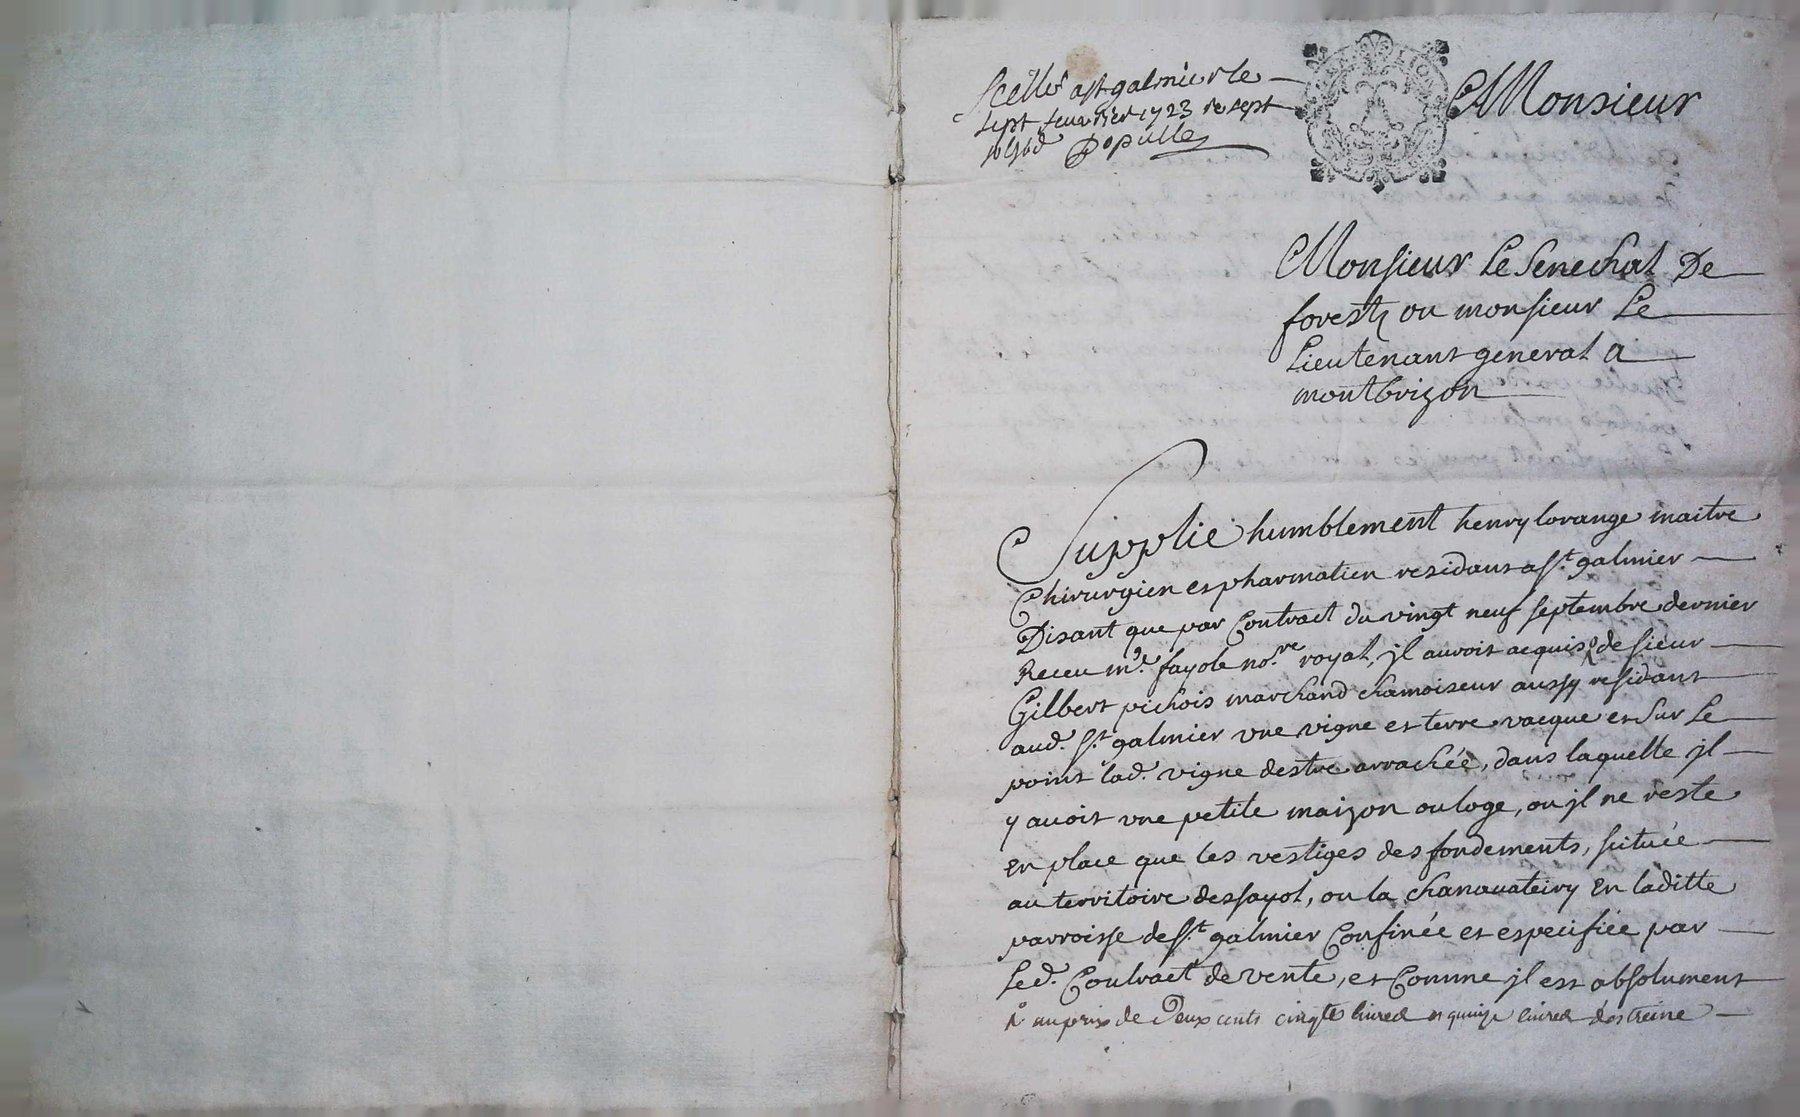 Scellé a st galmier le
sept feuvrier 1723 re sept
Populle
LION
A Monsieur
Monsieur le Senechal De
forestz ou monsieur le
Lieutenant general a
montbrizon
Supplie humblement henry lorange maitre
Chirurgien et pharmatien residant a st. galmier
Disant que par Contract du vingt neuf septembre dernier
Receu me. fayole nore. royal, jl auroit acquis de sieur
Gilbert pichois marchand chamoiseur aussy residant
aud. st. galmier vne vigne et terre vacque et sur le
point lad. vigne destre arrachée, dans laquelle jl
y auoit vne petite maizon ou loge, ou jl ne reste
en place que les vestiges des fondements, scituée
au territoire dessayol, ou la chanauateiry en laditte
parroisse de st. galmier Confinée et especifiée par
led. Contract de vente, et Comme jl est absolument
au prix de Deux cents cinqte livres et quinze livres destreine